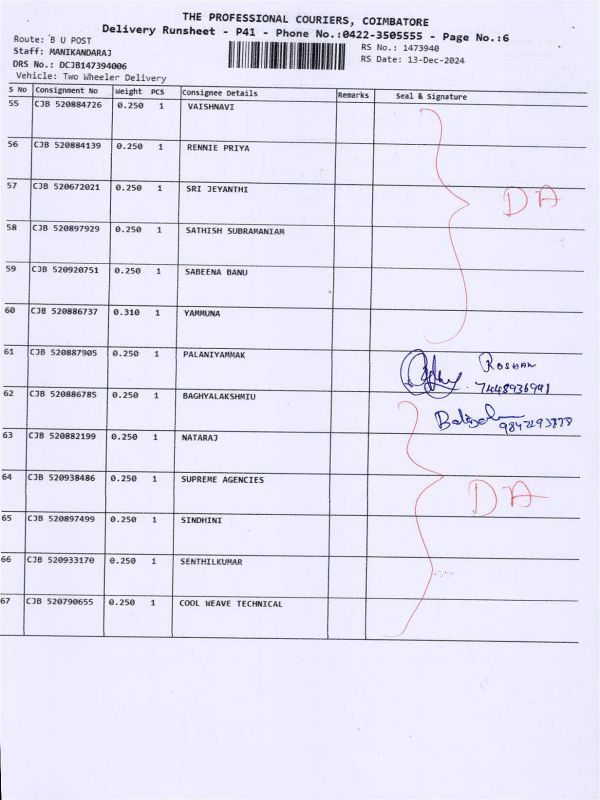 THE PROFESSIONAL COURIERS, COIMBATORE
Delivery Runsheet - P41 - Phone No.:0422-3505555 - Page No.:6
Route: B U POST
RS No.: 1473940
Staff: MANIKANDARAJ
RS Date: 13-Dec-2024
DRS No.: DCJB147394006
Vehicle: Two Wheeler Delivery
S No Consignment No Weight PCS Consignee Details Remarks Seal & Signature
55 CJB 520884726 0.250 1 VAISHNAVI
56 CJB 520884139 0.250 1 RENNIE PRIYA
57 CJB 520672021 0.250 1 SRI JEYANTHI
DA
58 CJB 520897929 0.250 1 SATHISH SUBRAMANIAM
59 CJB 520920751 0.250 1 SABEENA BANU
60 CJB 520886737 0.310 1 YAMMUNA
61 CJB 520887905 0.250 1 PALANIYAMMAK ROSHAN
7448936941
62 CJB 520886785 0.250 1 BAGHYALAKSHMIU
63 CJB 520882199 0.250 1 NATARAJ
64 CJB 520938486 0.250 1 SUPREME AGENCIES
DA
65 CJB 520897499 0.250 1 SINDHINI
66 CJB 520933170 0.250 1 SENTHILKUMAR
67 CJB 520790655 0.250 1 COOL WEAVE TECHNICAL